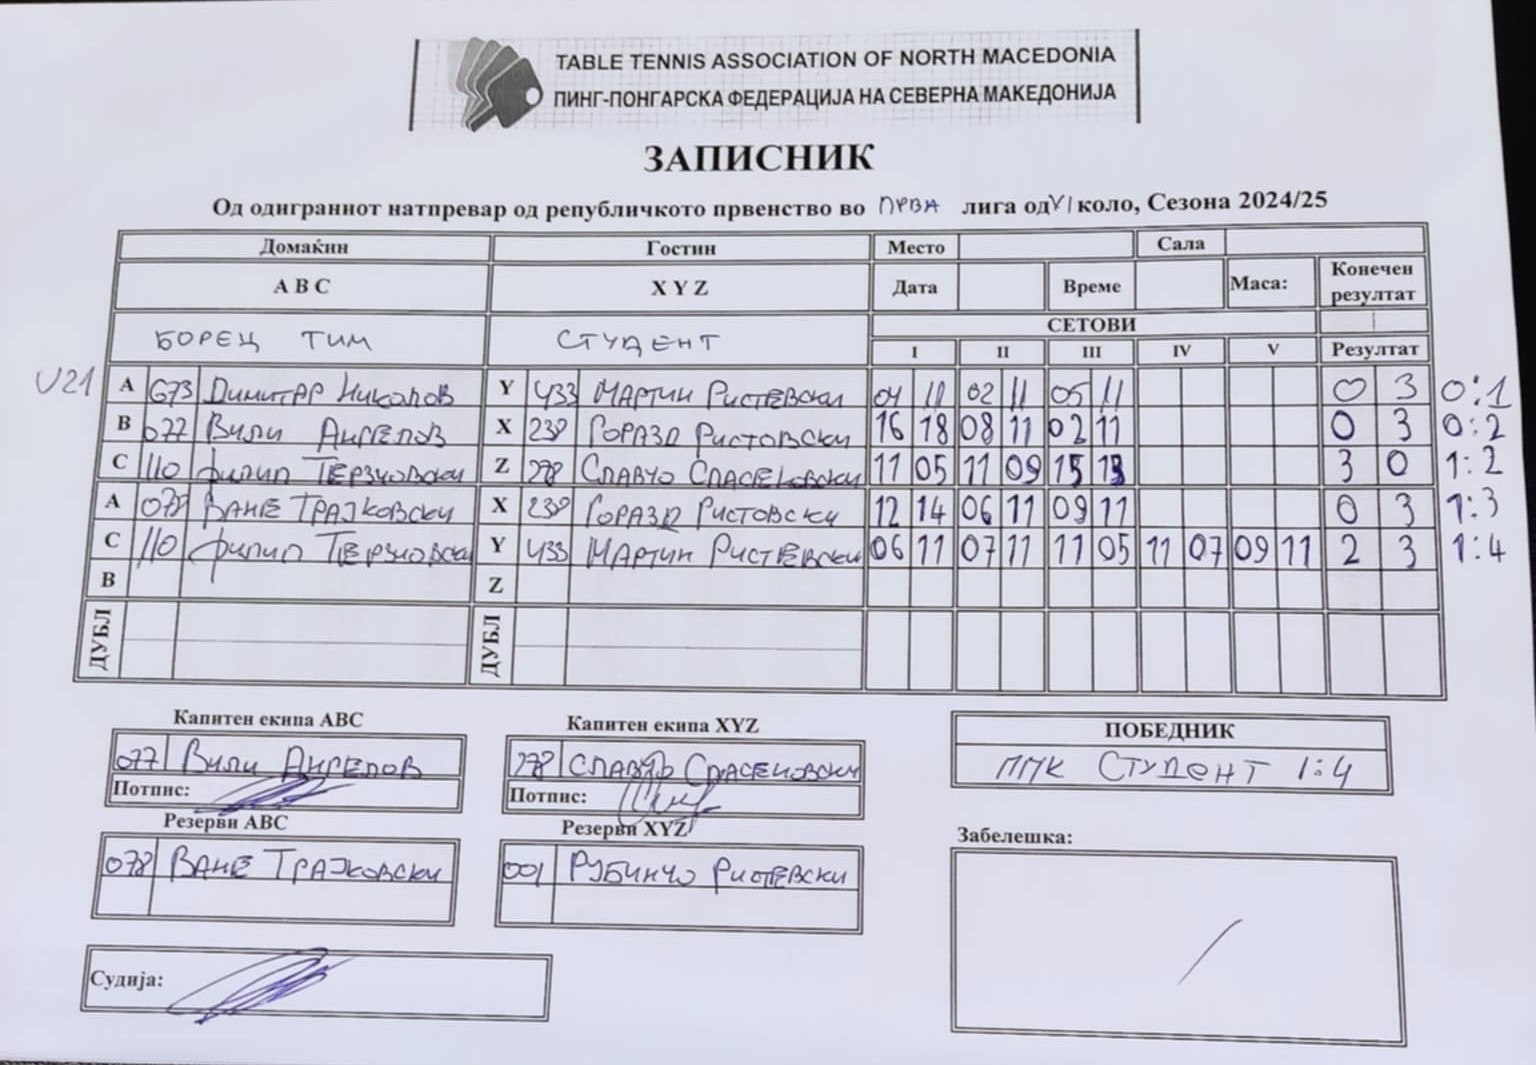 TABLE TENNIS ASSOCIATION OF NORTH MACEDONIA
ПИНГ-ПОНГАРСКА ФЕДЕРАЦИЈА НА СЕВЕРНА МАКЕДОНИЈА
ЗАПИСНИК
Од одиграниот натпревар од републичкото првенство во ПРВА лига од VI коло, Сезона 2024/25
Домаќин Гостин Место Сала
A B C X Y Z Дата Време Маса: Конечен резултат
БОРЕЦ ТИМ СТУДЕНТ СЕТОВИ
I II III IV V Резултат
U21 A 673 ДИМИТАР НИКОЛОВ Y 433 МАРТИН РИСТЕВСКИ 04 11 02 11 05 11 0 3 0:1
B 077 ВИЛИ АНГЕЛОВ X 238 ГОРАЗД РИСТОВСКИ 16 18 08 11 02 11 0 3 0:2
C 110 ФИЛИП ТЕРЗИОВСКИ Z 278 СЛАВЧО СПАСЕНОВСКИ 11 05 11 09 15 13 3 0 1:2
A 078 ВАНЕ ТРАЈКОВСКИ X 238 ГОРАЗД РИСТОВСКИ 12 14 06 11 09 11 0 3 1:3
C 110 ФИЛИП ТЕРЗИОВСКИ Y 433 МАРТИН РИСТЕВСКИ 06 11 07 11 11 05 11 07 09 11 2 3 1:4
B Z
ДУБЛ ДУБЛ
Капитен екипа ABC Капитен екипа XYZ ПОБЕДНИК
077 ВИЛИ АНГЕЛОВ 278 СЛАВЧО СПАСЕНОВСКИ ППК СТУДЕНТ 1:4
Потпис: Потпис:
Резерви ABC Резерви XYZ Забелешка:
078 ВАНЕ ТРАЈКОВСКИ 001 РУБИНЧО РИСТЕВСКИ
Судија: